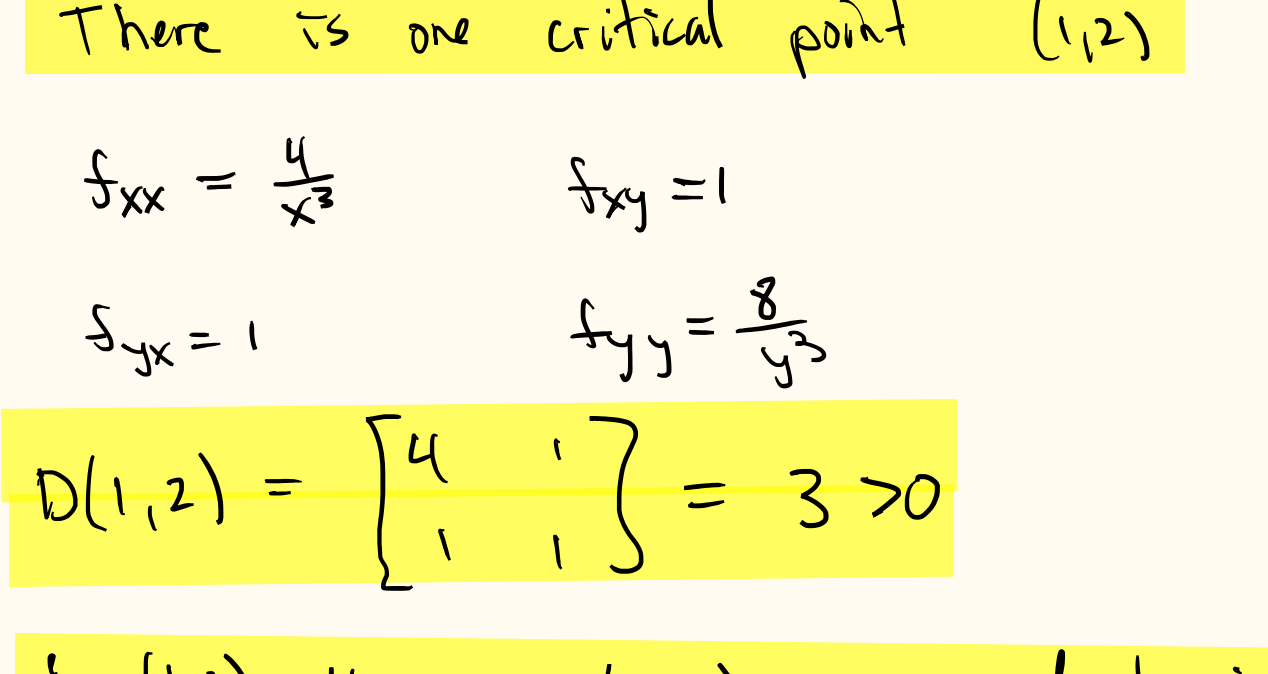 There is one critical point (1,2)
f_xx = 4/x^3    f_xy = 1
f_yx = 1    f_yy = 8/y^3
D(1,2) = [4 1; 1 1] = 3 >0